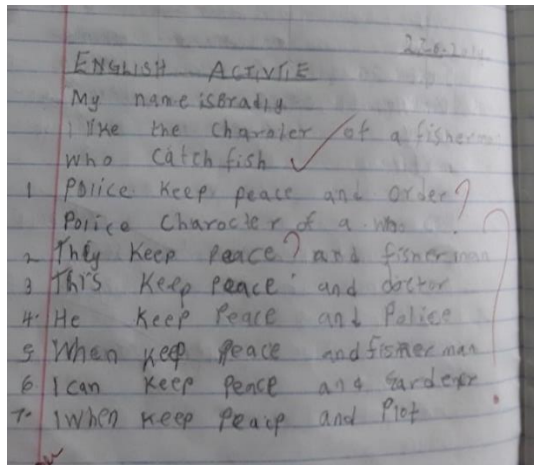 ENGLISH ACTIVTIE
My name is Bradly
I like the charater of a fisherman
who catch fish
1 Police keep peace and order?
Police Charocter of a who
2 They keep peace? and fisherman
3 This keep peace and doctor
4. He keep Peace and Police
5 When keep peace and fisherman
6 I can keep peace and Gardener
7. I when keep peace and Plot